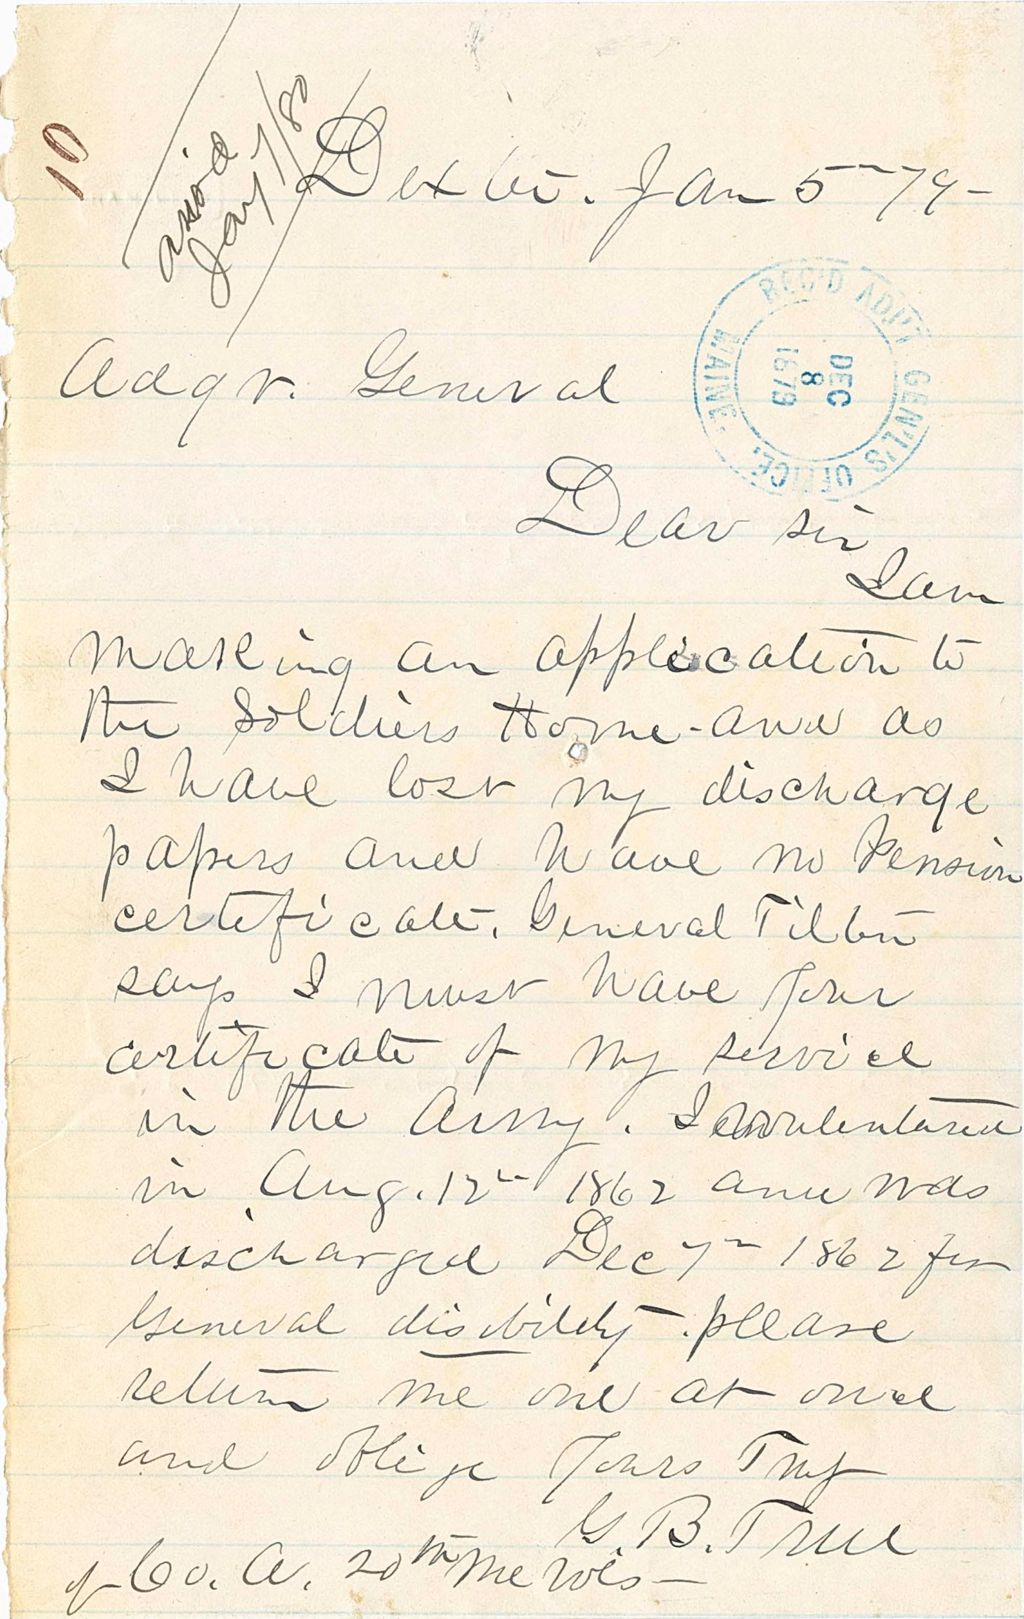 10
ansd
Jany 7/80
Dexter. Jan 5th 79-
REC'D ADJ'T GEN'L'S OFFICE. MAINE.
DEC
8
1879
Adgt. General
Dear sir
I am
making an application to
the Soldiers Home-and as
I have lost my discharge
papers and have no Pension
certificate. General Tilton
says I must have your
certificate of my service
in the Army. I
in Aug. 12th 1862 and was
discharged Dec 7th 1862 for
General disibildty. please
return me one at once
and oblige Yours Truly
G. B. True
of Co. A. 20th Me Vols-